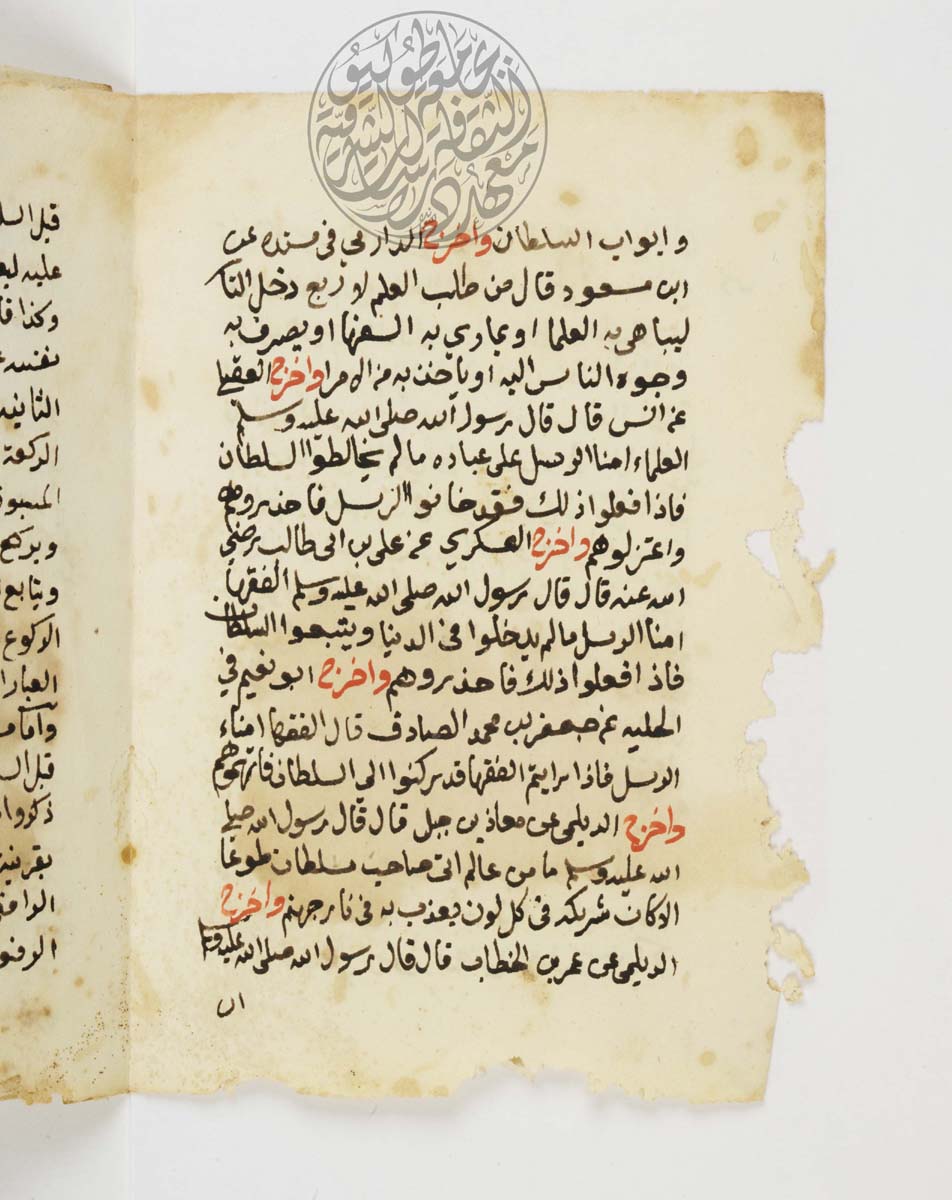 وابواب السلطان واخرج الدارمي في مسنده عن
ابن مسعود قال من طلب العلم لاربع دخل النار
ليباهي به العلما او يماري به السفها او يصرف به
وجوه الناس اليه او ياخذ به من الامرا واخرج العقيلي
عن انس قال قال رسول الله صلى الله عليه وسلم
العلماء امنا الرسل على عباده ما لم يخالطوا السلطان
فاذا فعلوا ذلك فقد خانوا الرسل فاحذروهم
واعتزلوهم واخرج العسكري عن علي بن ابى طالب رضي
الله عنه قال قال رسول الله صلى الله عليه وسلم الفقها
امنا الرسل مالم يدخلوا في الدنيا ويتبعوا السلطان
فاذا فعلوا ذلك فاحذروهم واخرج ابو نعيم في
الحليه عن جعفر بن محمد الصادق قال الفقها امناء
الرسل فاذا رايتم الفقها قد ركنوا الى السلطان فاتهموهم
واخرج الديلمى عن معاذ بن جبل قال قال رسول الله صلى
الله عليه وسلم ما من عالم اتى صاحب سلطان طوعا
الا كان شريكه في كل لون يعذب به في نار جهنم واخرج
الديلمى عن عمر بن الخطاب قال قال رسول الله صلى الله عليه وسلم
ان
قبل
عليه
وكذا
نفسه
الثانيه
الركعة
ويركع
الركوع
قبل
ذكروا
معهد دراسات الثقافة الشرقية
بجامعة طوكيو